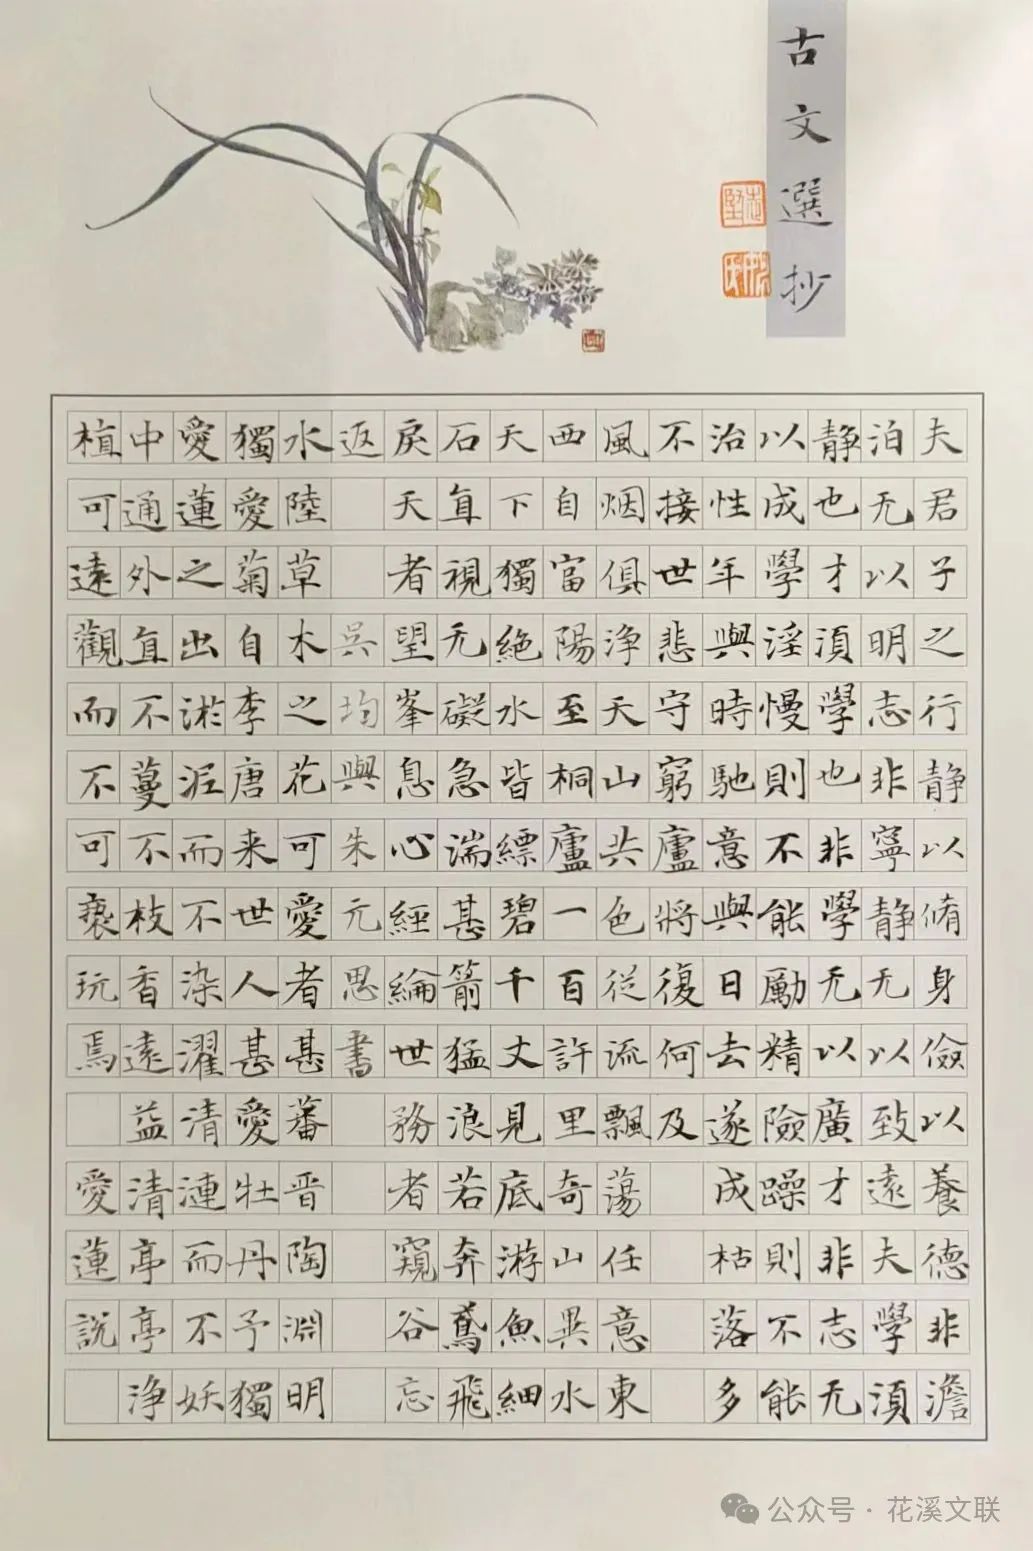 古文選抄
夫君子之行静以脩身儉以養德非澹
泊无以明志非寧静无以致遠夫學須
静也才須學也非學无以廣才非志无
以成學淫慢則不能勵精險躁則不能
治性年與時馳意與日去遂成枯落多
不接世悲守窮廬將復何及
風烟俱淨天山共色從流飄蕩任意東
西自富陽至桐廬一百許里奇山異水
天下獨絶水皆縹碧千丈見底游魚細
石直視无礙急湍甚箭猛浪若奔鳶飛
戾天者望峯息心經綸世務者窺谷忘
返 吳均與朱元思書
水陸草木之花可愛者甚蕃晋陶淵明
獨愛菊自李唐来世人甚愛牡丹予獨
愛蓮之出淤泥而不染濯清漣而不妖
中通外直不蔓不枝香遠益清亭亭淨
植可遠觀而不可褻玩焉 愛蓮說
公众号·花溪文联